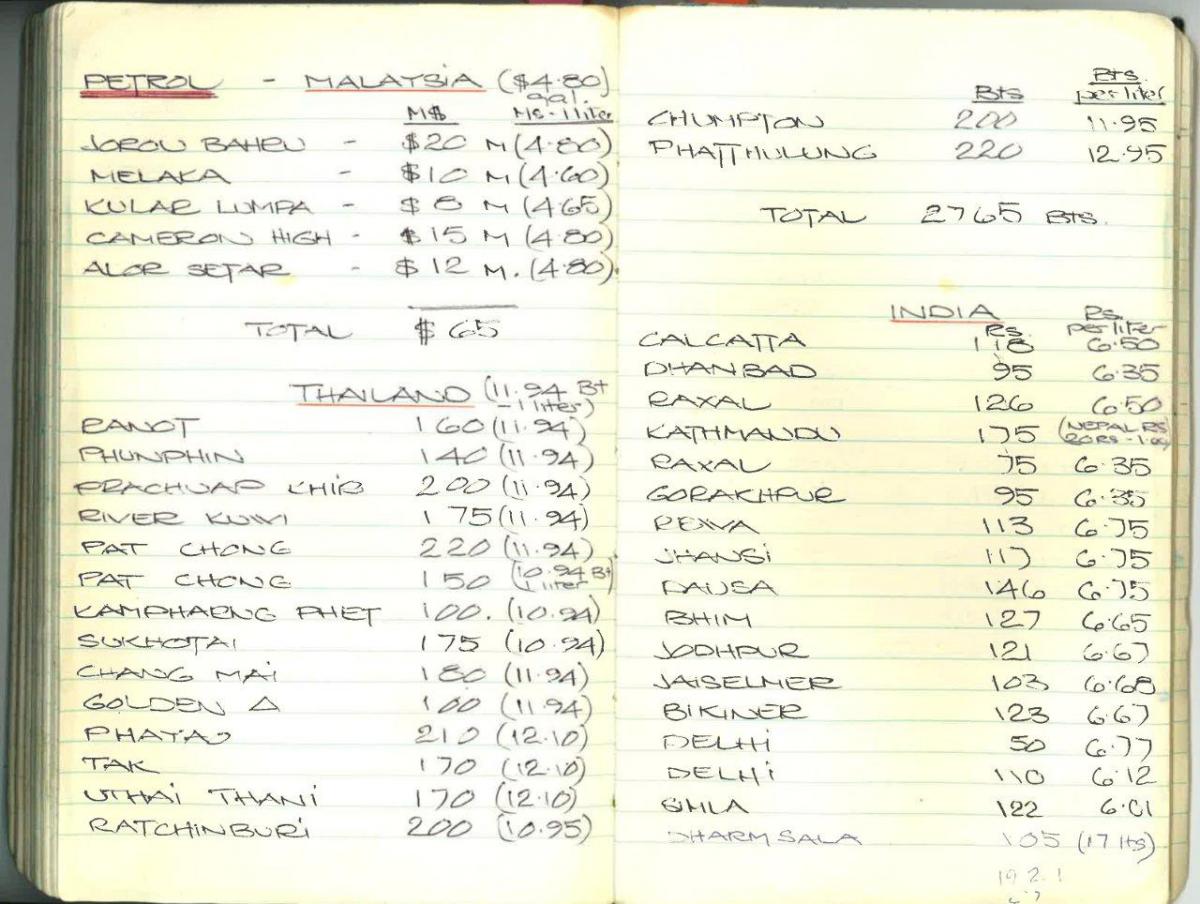 PETROL - MALAYSIA ($4.80)
gal.
M$ M$ - 1 liter
JOROU BAHRU - $20 M (4.80)
MELAKA - $10 M (4.60)
KULAR LUMPA - $8 M (4.65)
CAMERON HIGH - $15 M (4.80)
ALOR SETAR - $12 M. (4.80)
TOTAL $65
THAILAND (11.94 Bt
- 1 liter)
RANOT 160 (11.94)
PHUNPHIN 140 (11.94)
PRACHUAP KHIB 200 (11.94)
RIVER KUWI 175 (11.94)
PAT CHONG 220 (11.94)
PAT CHONG 150 (10.94 Bt
1 liter
KAMPHAENG PHET 100. (10.94)
SUKHOTAI 175 (10.94)
CHANG MAI 180 (11.94)
GOLDEN △ 100 (11.94)
PHAYAO 210 (12.10)
TAK 170 (12.10)
UTHAI THANI 170 (12.10)
RATCHINBURI 200 (10.95)
Bts Bts.
per liter
CHUMPTON 200 11.95
PHATTHULUNG 220 12.95
TOTAL 2765 BTS.
INDIA Rs.
Rs. per liter
CALCATTA 118 6.50
DHANBAD 95 6.35
RAXAL 126 6.50
KATHMANDU 175 (NEPAL RS
20RS - 1.00)
RAXAL 75 6.35
GORAKHPUR 95 6.35
REWA 113 6.75
JHANSI 117 6.75
DAUSA 146 6.75
BHIM 127 6.65
JODHPUR 121 6.67
JAISELMER 103 6.68
BIKINER 123 6.67
DELHI 50 6.77
DELHI 110 6.12
SIMLA 122 6.01
DHARMSALA 105 (17 lts)
192.1